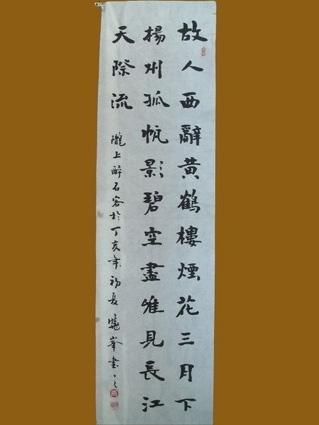 故人西辭黃鶴樓煙花三月下
楊州孤帆影碧空盡唯見長江
天際流
上醉石客於丁亥年初夏曉峯書